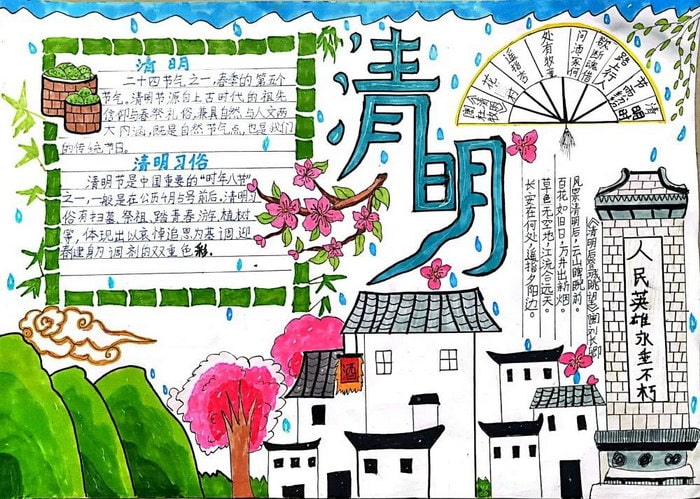 清明
清明
二十四节气之一,春季的第五个
节气,清明节源自上古时代的祖先
信仰与春祭礼俗,兼具自然与人文两
大内涵,既是自然节气点,也是我们
的传统节日。
清明习俗
清明节是中国重要的“时年八节”
之一,一般是在公历4月5号前后,清明习
俗有扫墓、祭祖、踏青春游、植树
等,体现出以哀悼追思为基调、迎
春健身为调剂的双重色彩.
清明时
节雨纷纷
路上行人
欲断魂借
问酒家何
处有牧童
遥指杏
花村
《清明后登城眺望》唐刘长卿
风景清明后,云山睥睨前。
百花如旧日,万井出新烟。
草色无空地,江流合远天。
长安在何处,遥指夕阳边。
酒
人民英雄永垂不朽